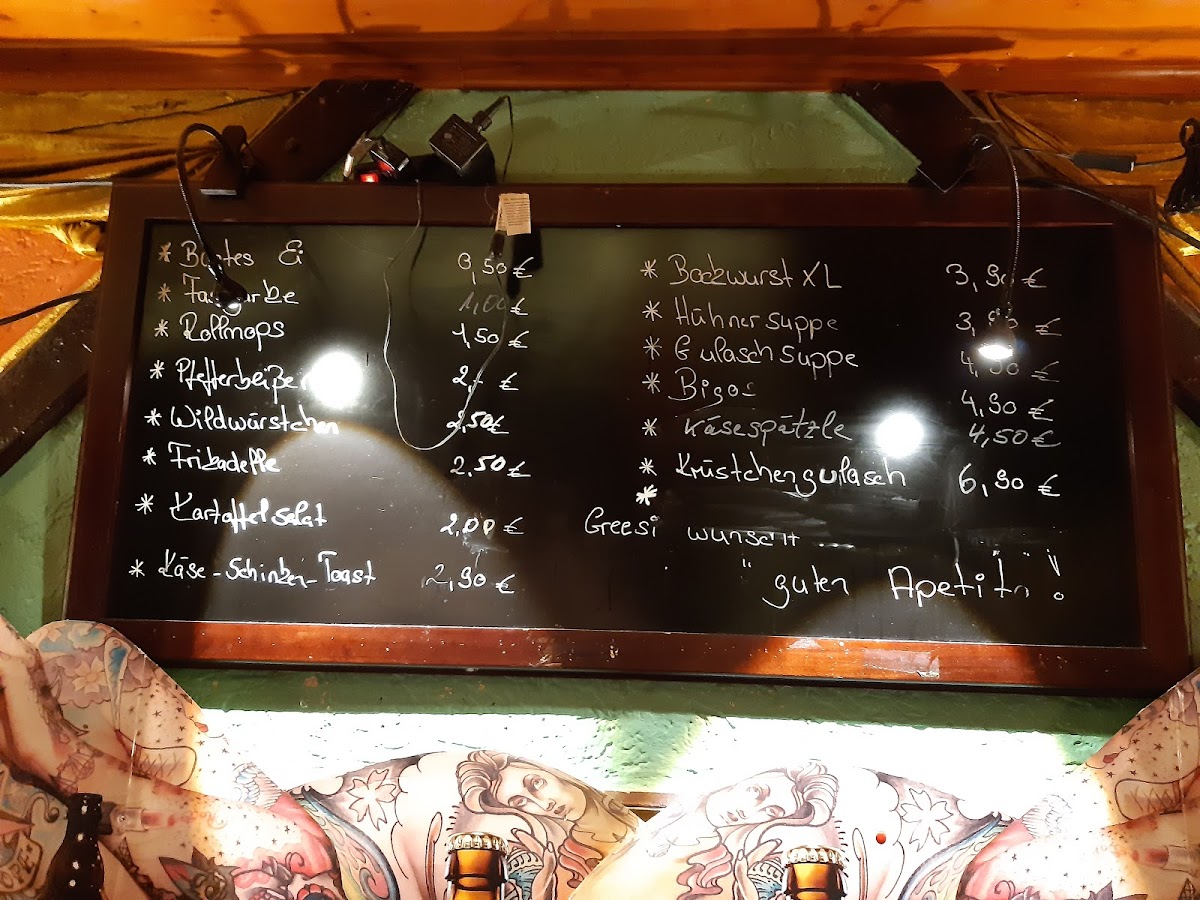 * Buntes Ei 0,50 €
* 1,00 €
* Rollmops 1,50 €
* Pfefferbeißer 2,- €
* Wildwürstchen 2,50 €
* Frikadelle 2,50 €
* Kartoffelsalat 2,00 €
* Käse-Schinken-Toast 2,90 €
* Bockwurst XL 3,90 €
* Hühnersuppe 3,90 €
* Gulaschsuppe 4,90 €
* Bigos 4,90 €
* Käsespätzle 4,50 €
* Krüstchengulasch 6,90 €
*
Greesi wünscht ...
"guten Apetitn"!